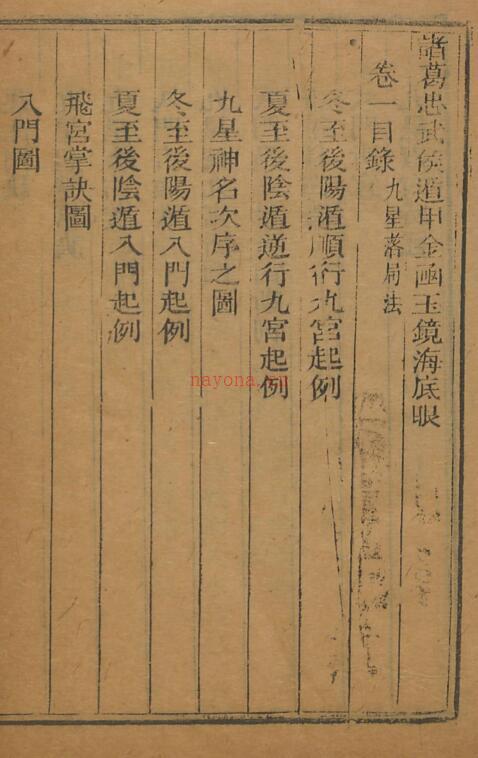 諸葛忠武侯遁甲金凾玉鏡海底眼
卷一目錄 九星落局法
冬至後陽遁順行九宮起例
夏至後陰遁逆行九宮起例
九星神名次序之圖
冬至後陽遁八門起例
夏至後陰遁八門起例
飛宮掌訣圖
八門圖
nayona.cn